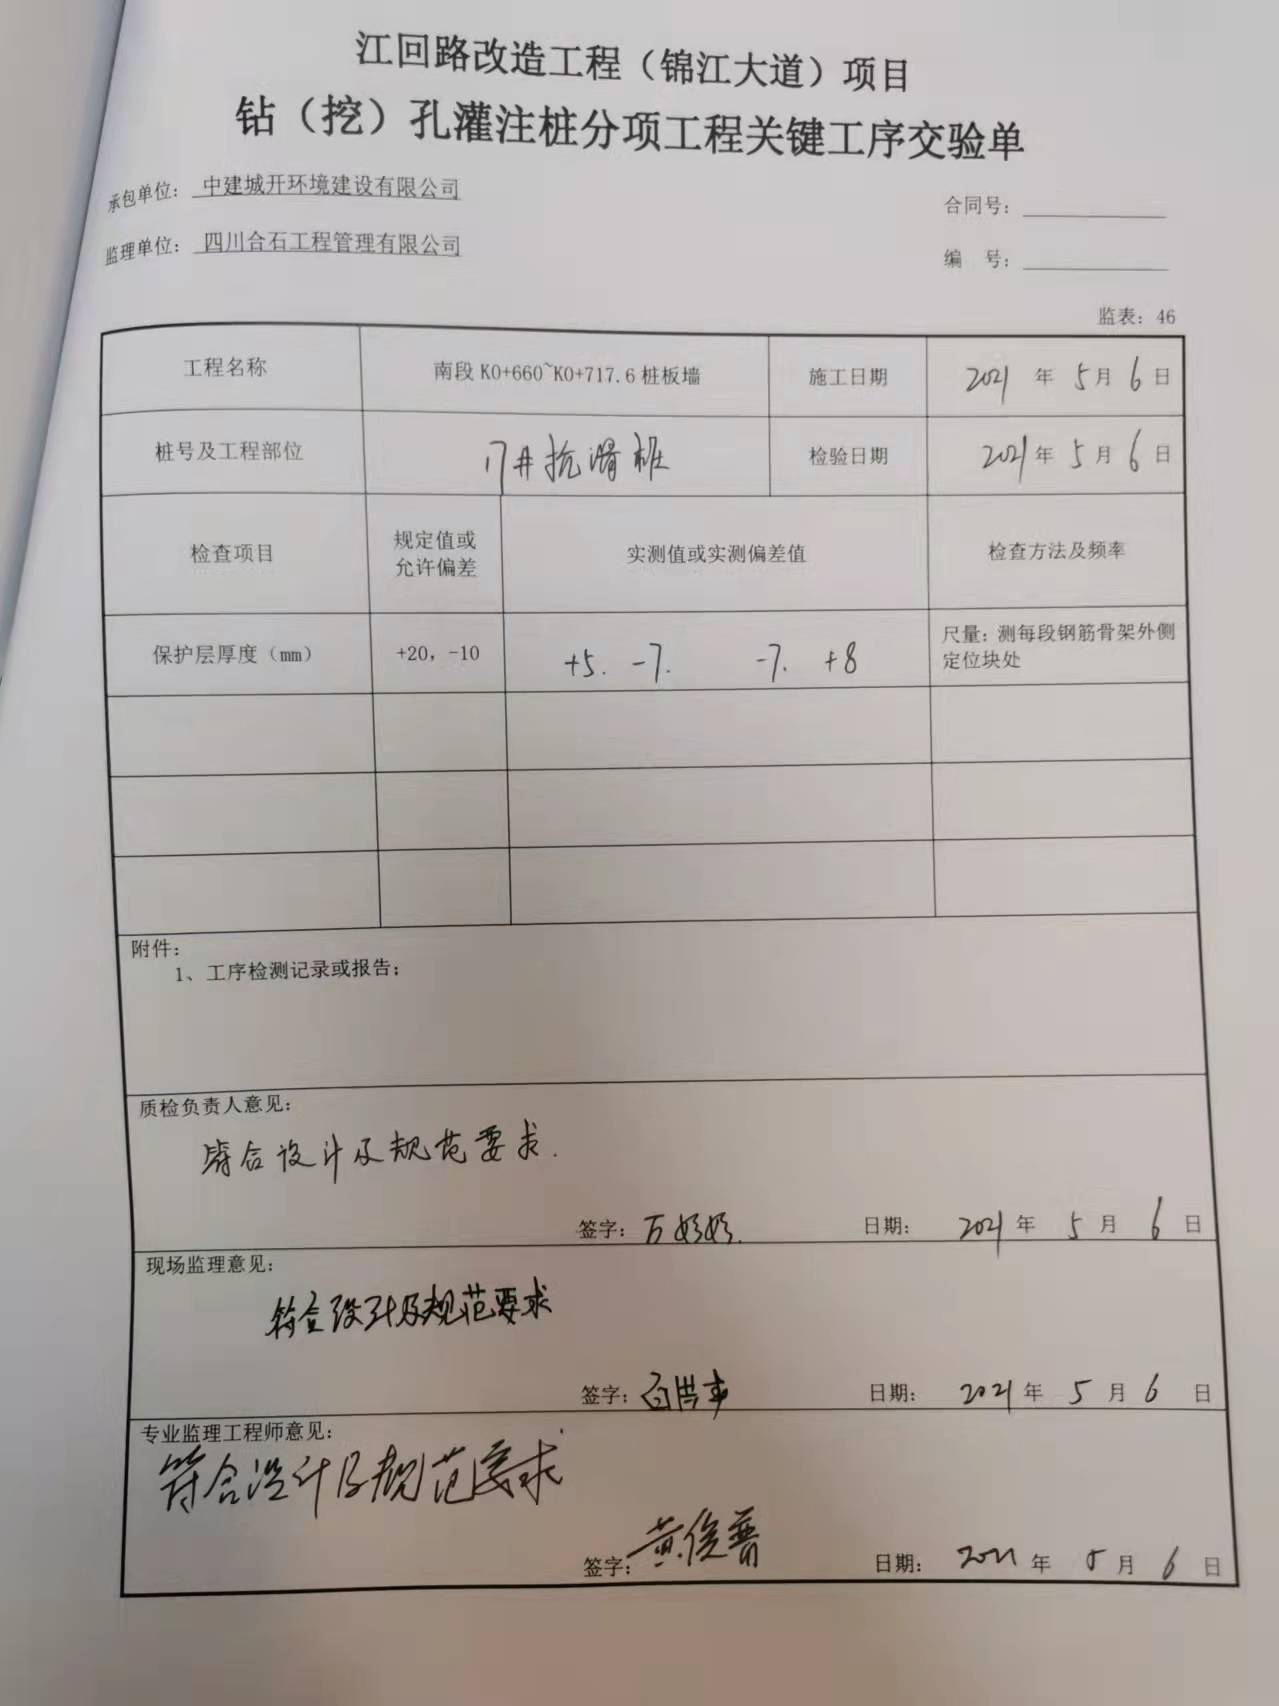 江回路改造工程（锦江大道）项目
钻（挖）孔灌注桩分项工程关键工序交验单
承包单位： 中建城开环境建设有限公司
合同号：
监理单位： 四川合石工程管理有限公司
编 号：
监表：46
工程名称 南段 K0+660~K0+717.6 桩板墙 施工日期 2021 年 5 月 6 日
桩号及工程部位 17#抗滑桩 检验日期 2021 年 5 月 6 日
检查项目 规定值或 实测值或实测偏差值 检查方法及频率
允许偏差
保护层厚度（mm） +20，-10 +5. -7. -7. +8 尺量：测每段钢筋骨架外侧
定位块处
附件：
1、工序检测记录或报告；
质检负责人意见：
符合设计及规范要求.
签字： 万 日期： 2021 年 5 月 6 日
现场监理意见：
符合设计及规范要求
签字： 日期： 2021 年 5 月 6 日
专业监理工程师意见：
符合设计及规范要求
签字： 黄俊 日期： 2021 年 5 月 6 日